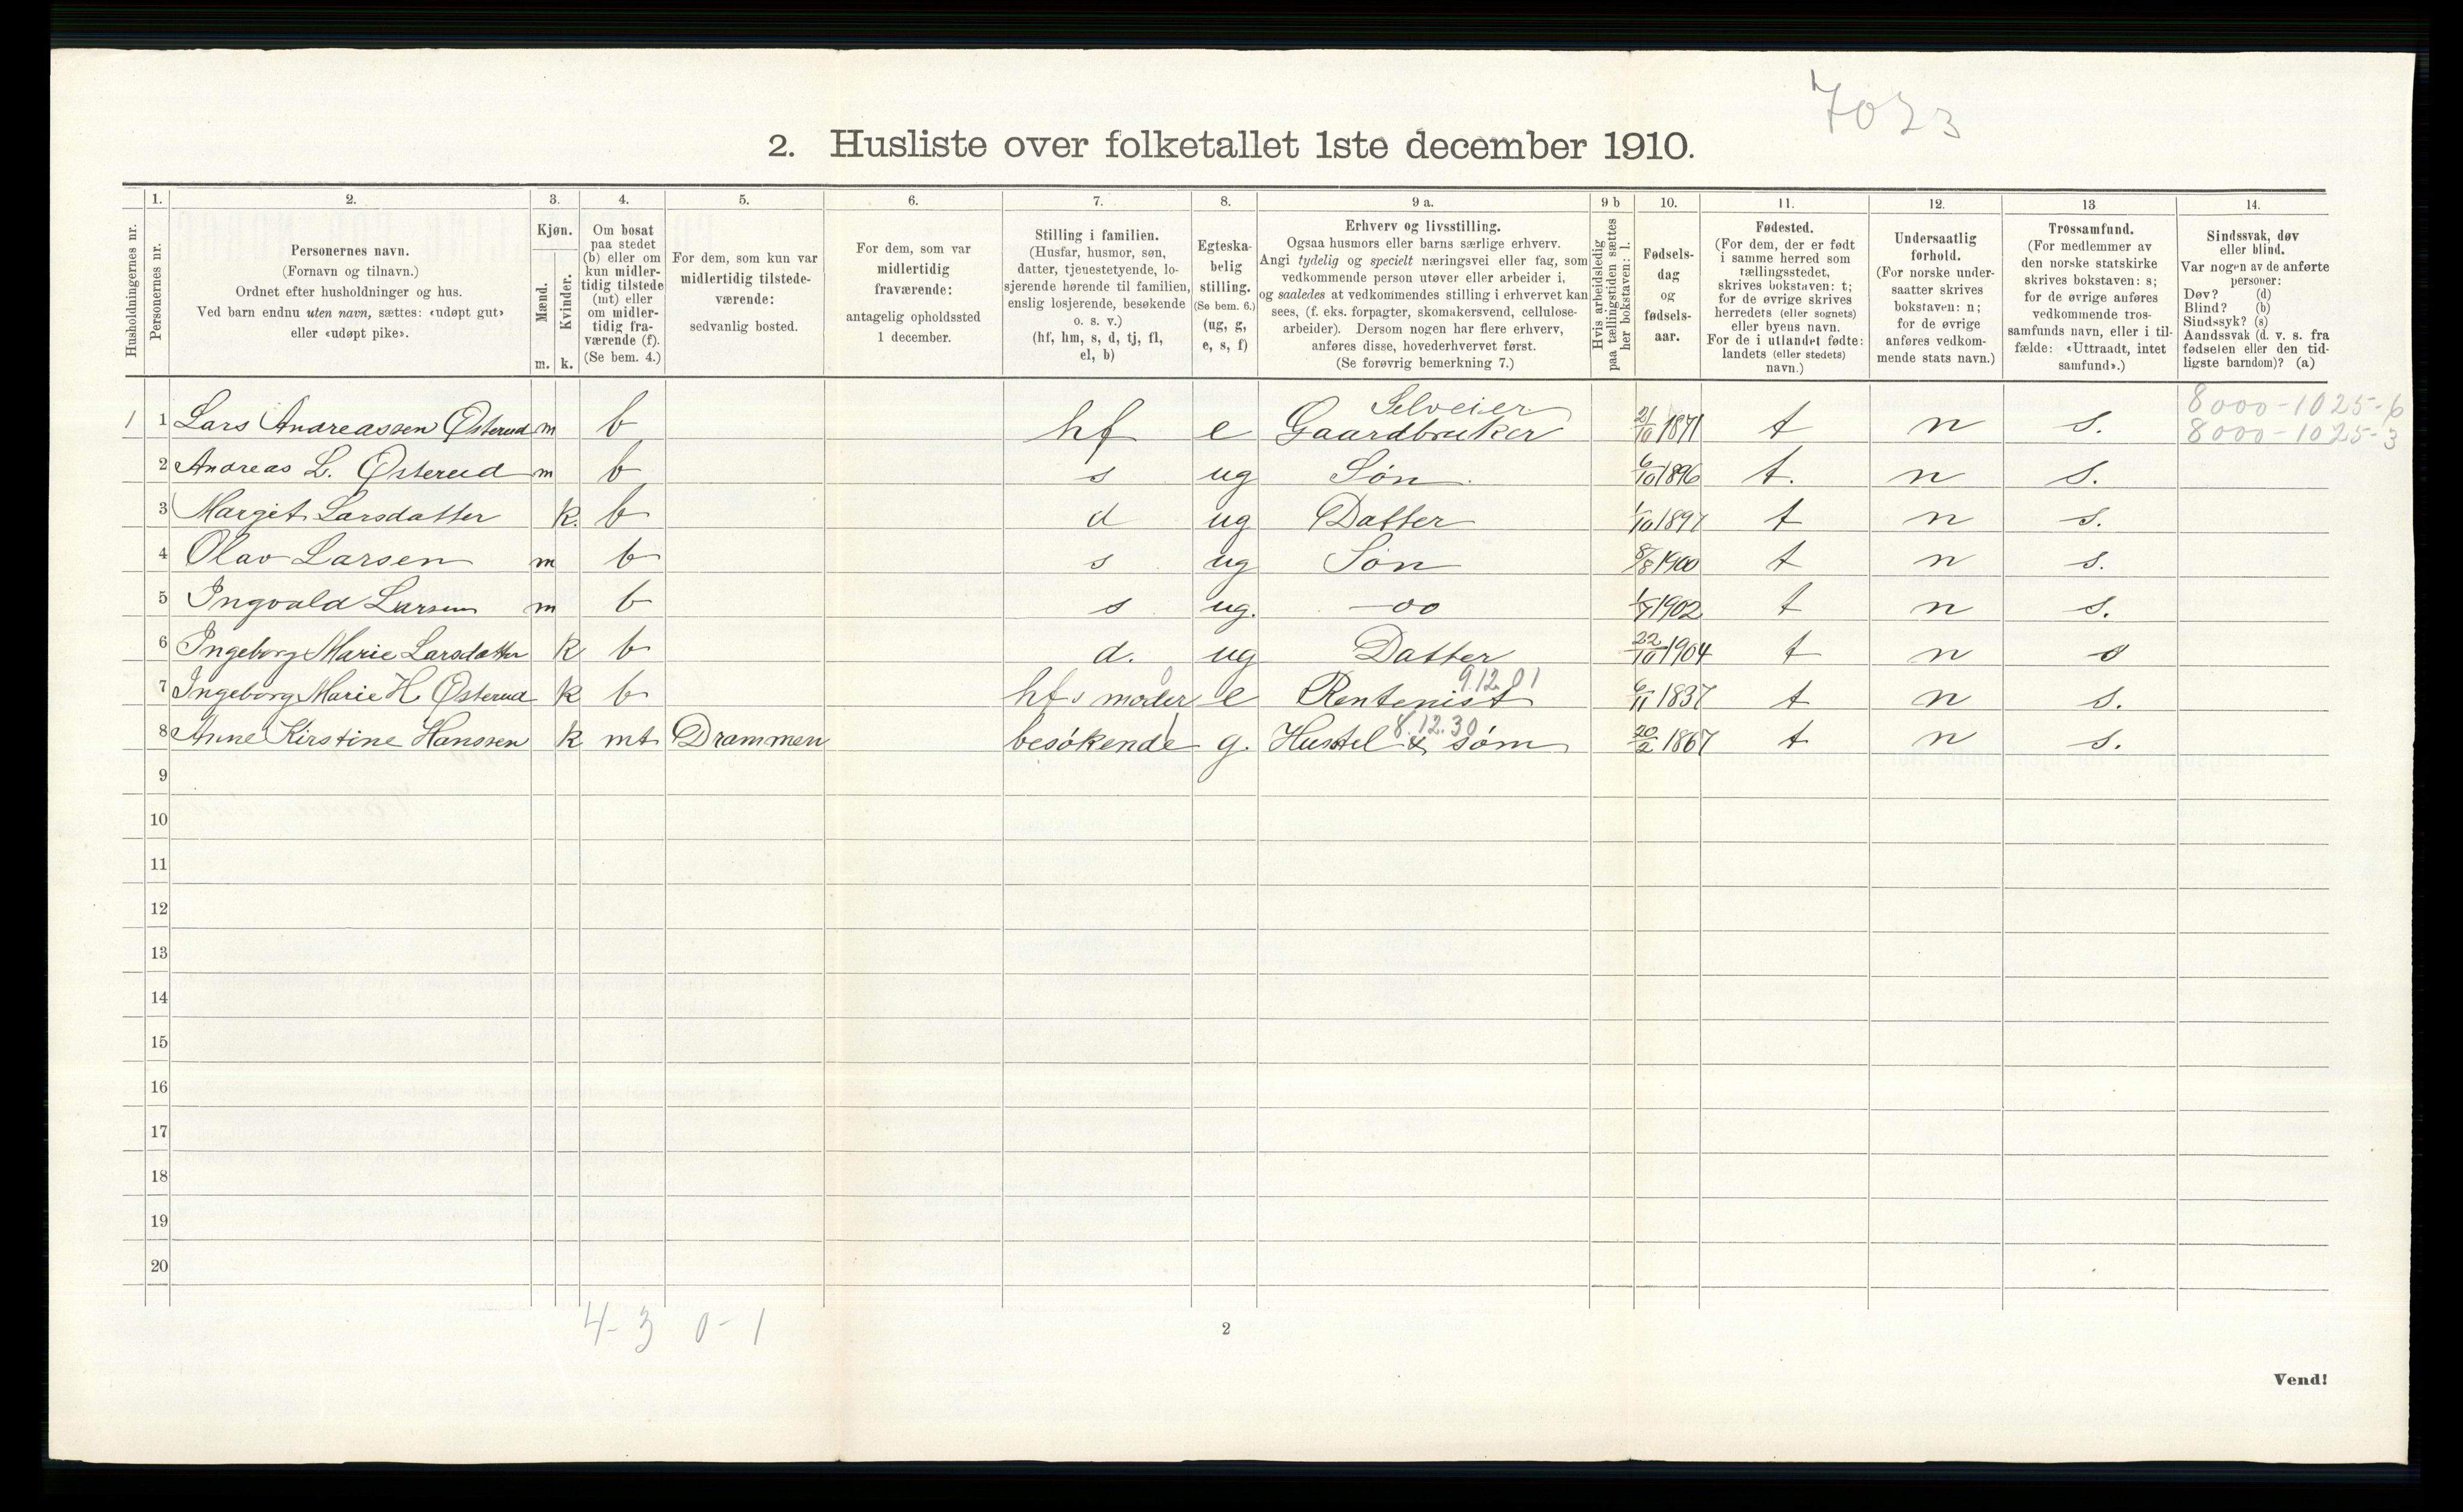 7023
2. Husliste over folketallet 1ste december 1910.
Husholdningernes nr.
1.
Personernes nr.
2.
Personernes navn.
(Fornavn og tilnavn.)
Ordnet efter husholdninger og hus.
Ved barn endnu uten navn, sættes: «udøpt gut»
eller «udøpt pike».
3.
Kjøn.
Mænd.
Kvinder.
m. k.
4.
Om bosat
paa stedet
(b) eller om
kun midler-
tidig tilstede
(mt) eller
om midler-
tidig fra-
værende (f).
(Se bem. 4.)
5.
For dem, som kun var
midlertidig tilstede-
værende:
sedvanlig bosted.
6.
For dem, som var
midlertidig
fraværende:
antagelig opholdssted
1 december.
7.
Stilling i familien.
(Husfar, husmor, søn,
datter, tjenestetyende, lo-
sjerende hørende til familien,
enslig losjerende, besøkende
o. s. v.)
(hf, hm, s, d, tj, fl,
el, b)
8.
Egteska-
belig
stilling.
(Se bem. 6.)
(ug, g,
e, s, f)
9 a.
Erhverv og livsstilling.
Ogsaa husmors eller barns særlige erhverv.
Angi tydelig og specielt næringsvei eller fag, som
vedkommende person utøver eller arbeider i,
og saaledes at vedkommendes stilling i erhvervet kan
sees, (f. eks. forpagter, skomakersvend, cellulose-
arbeider). Dersom nogen har flere erhverv,
anføres disse, hovederhvervet først.
(Se forøvrig bemerkning 7.)
9 b
Hvis arbeidsledig
paa tællingstiden sættes
her bokstaven: l.
10.
Fødsels-
dag
og
fødsels-
aar.
11.
Fødested.
(For dem, der er født
i samme herred som
tællingsstedet,
skrives bokstaven: t;
for de øvrige skrives
herredets (eller sognets)
eller byens navn.
For de i utlandet fødte:
landets (eller stedets)
navn.)
12.
Undersaatlig
forhold.
(For norske under-
saatter skrives
bokstaven: n;
for de øvrige
anføres vedkom-
mende stats navn.)
13
Trossamfund.
(For medlemmer av
den norske statskirke
skrives bokstaven: s;
for de øvrige anføres
vedkommende tros-
samfunds navn, eller i til-
fælde: «Uttraadt, intet
samfund».)
14.
Sindssvak, døv
eller blind.
Var nogen av de anførte
personer:
Døv? (d)
Blind? (b)
Sindssyk? (s)
Aandssvak (d. v. s. fra
fødselen eller den tid-
ligste barndom)? (a)
Selveier 8000-1025-6
1 1 Lars Andreassen Østerud m b hf e Gaardbruker 21/10 1871 t n s. 8000-1025-3
2 Andreas L. Østerud m b s ug Søn 6/10 1896 t. n s.
3 Margit Larsdatter k. b d ug Datter 1/10 1897 t n s.
4 Olav Larsen m b s ug Søn 8/8 1900 t n s.
5 Ingvald Larsen m b s ug. —oo 1902 t n s.
6 Ingeborg Marie Larsdatter k b d. ug Datter 22/10 1904 t n s
9.12.01
7 Ingeborg Marie H. Østerud k b hfs moder e Rentenist 6/11 1837 t n s.
8.12.30
8 Anne Kirstine Hanssen k mt Drammen besøkende g. Hustel & søm 20/2 1867 t n s.
9
10
11
12
13
14
15
16
17
18
19
20
4-3 0-1
2
Vend!